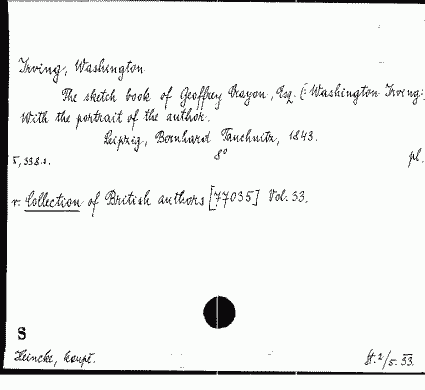 Irving, Washington
The sketch book of Geoffrey Crayon, Esq. (: Washington Irving:)
With the portrait of the author.
Leipzig, Bernhard Tauchnitz, 1843.
8° pl.
v: Collection of British authors [77035] Vol. 33.
S
Heincke, kaupt. St. 2/5. 33.